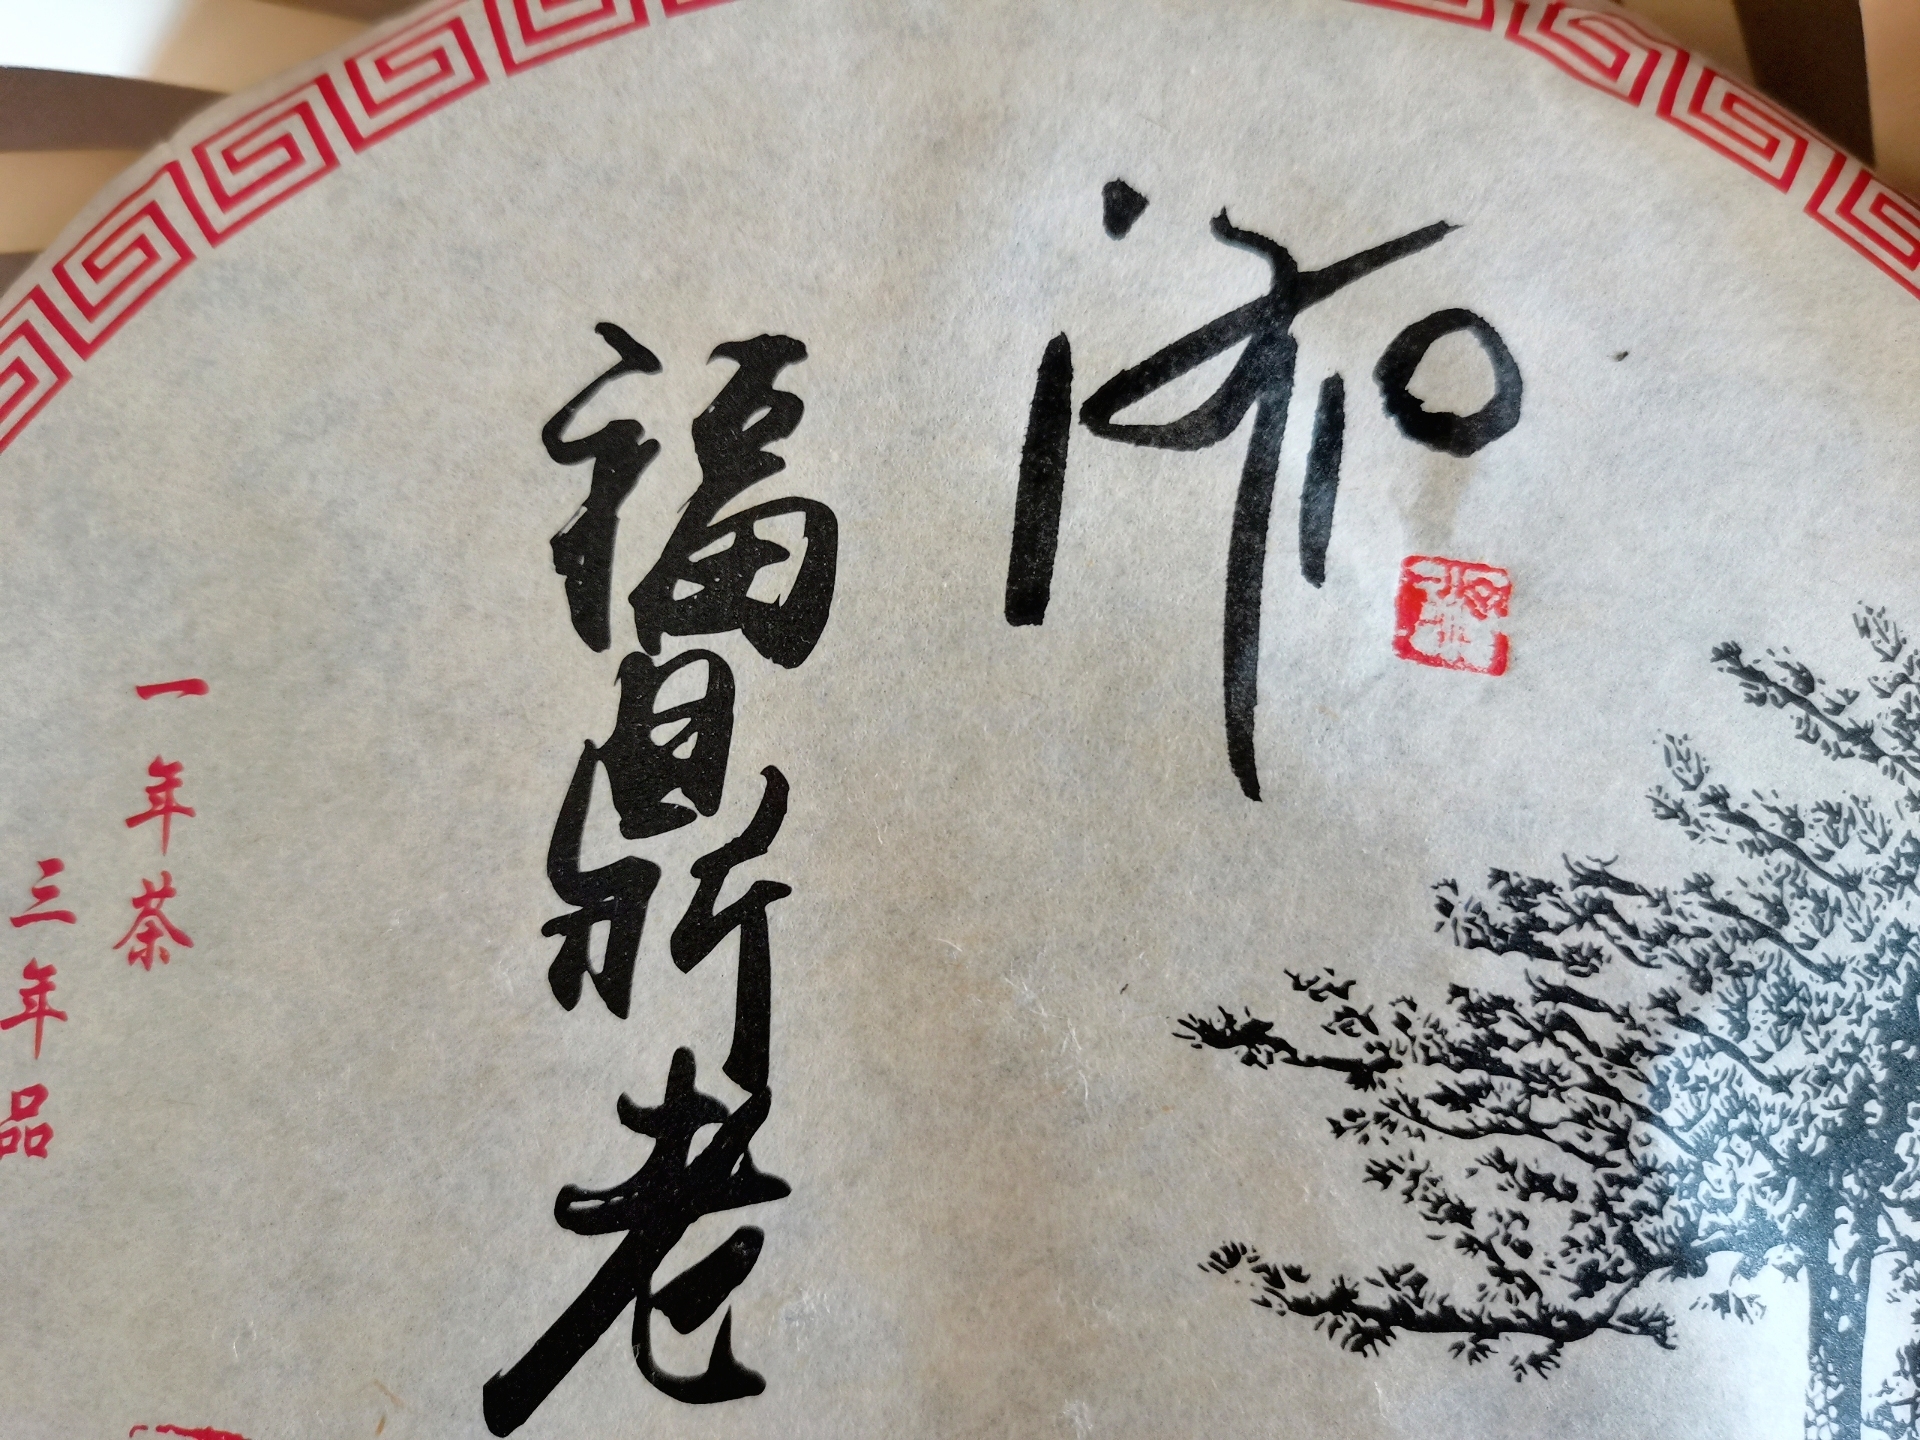 福鼎老
一年茶
三年品